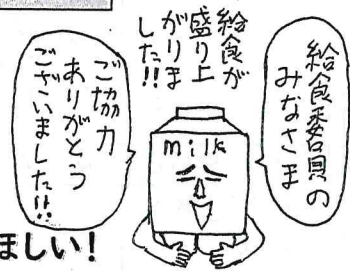 給食委員の
みなさま
給食が
盛り上
がりま
した!!
ご協力
ありがとう
ございました!!
milk
ましい！